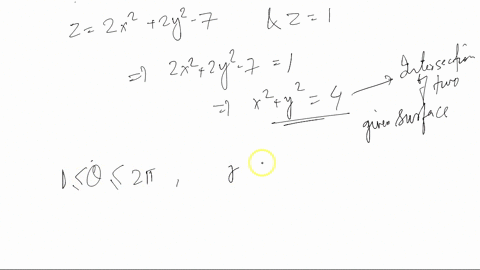 z = 2x² + 2y² - 7 & z = 1
⇒ 2x² + 2y² - 7 = 1
⇒ x² + y² = 4 → Intersection of two given surface
1 ≤ θ ≤ 2π , r